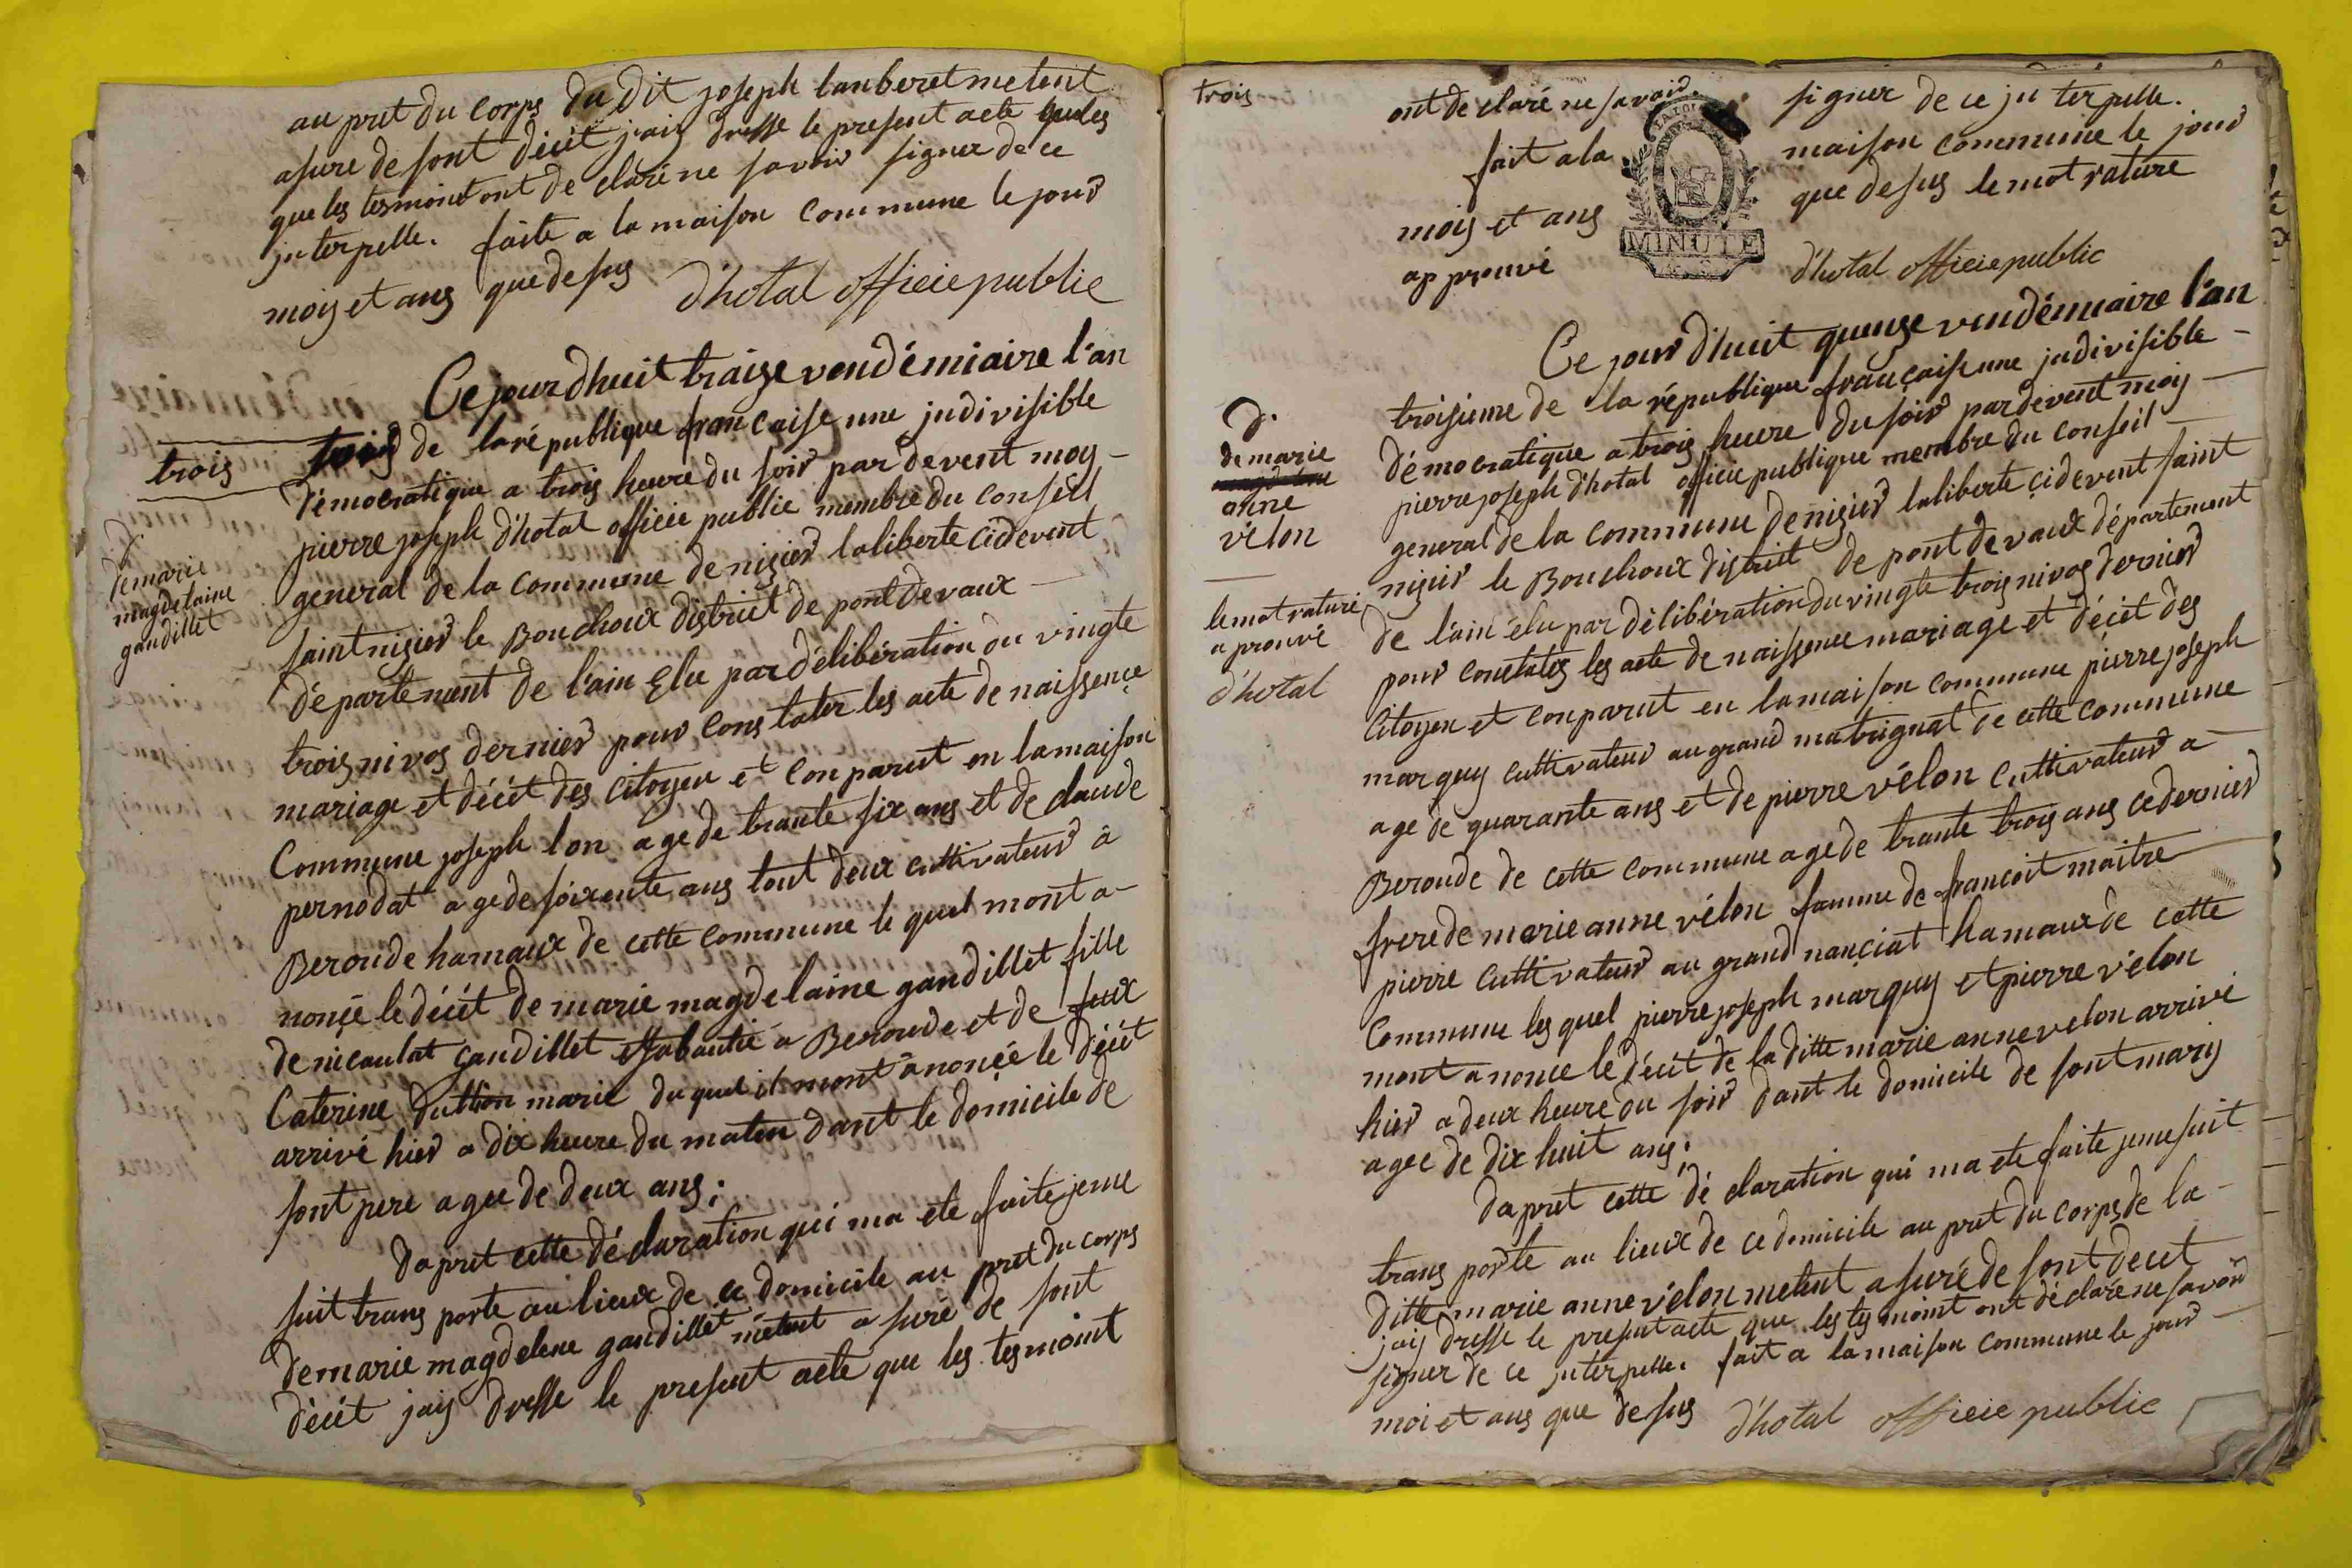 au pret du corps du dit joseph lanberet metent
asure de sont décit jaiy dresse le present acte
que les tesmoint ont de claré ne savoir signer de ce
interpelle. faite a la maison commune le jour
mois et ans que desus d'hotal officie public
Ce jour dhuit traize vendémiaire l'an
trois de la république francaise une indivisible
démocratique a trois heure du soir par devent moy
pierre joseph d'hotal officie public membre du conseil
general de la commune de nizier la liberte cidevent
saint nizier le Bouchoux district de pont devaux
département de l'ain Elu par délibération du vingte
trois nivos dernier pour constater les acte de naissence
mariage et décit des citoyen et conparut en la maison
Commune joseph lon age de trante six ans et de claude
pernodat age de soixente ans tout deux cultivateur à
Beroude hamaux de cette commune le quel mont a
nonçé le décit de marie magdelaine gandillet fille
de nicaulat gandillet a Beroude et de feux
Caterine marié duquel il mont ànonçée le décit
arrivé hier a dix heure du maten dant le domicile de
sont pere agee de deux ans;
Dapret cette déclaration qui ma ete faite jeme
suit trans porte au lieux de ce domicile au pret du corps
de marie magdelene gandillét métent a suré de sont
décit jaiy dresse le present acte que les tesmoint
trois
D.
de marie
magdelaine
gandillet
trois
ont de claré ne savoir signer de ce in terpelle.
fait a la maison commune le jour
mois et ans que desus le mot rature
ap prouvé d'hotal officie public
MINUTE
Ce jour d'huit quinze vendémiaire l'an
troisieme de la république française une indivisible
démocratique a trois heure du soir pardevent moiy
pierre joseph d'hotal officie publique membre du conseil
general de la commune de nizier la liberte çidevent saint
nizier le Bouchoux district de pont devaux département
de l'ain élu par délibération du vingte trois nivos dernier
pour constater les acte de naissence mariage et décit des
Citoyen et conparut en la maison commune pierre joseph
marguy cultivateur au grand matrignat de cette commune
age de quarante ans et de pierre vélon cultivateur a
Beroude de cette commune age de trante trois ans ce dernier
frere de marie anne vélon famme de francoit maitre
pierre cultivateur au grand nançiat hamaux de cette
Commune les quel pierre joseph marguy et pierre vélon
mont anonce le décit de la ditte marie anne velon arrivé
hier a deux heure du soir dant le domicile de sont mary
agee de dix huit ans.
Dapret cette dé claration qui ma ete faite jeme suit
trans porte au lieux de ce domicile au pret du corps de la
ditte marie anne vélon metent a suré de sont decit
jaiy dresse le present acte que les tesmoint ont déclaré ne savoir
signer de ce interpelle. fait a la maison commune le jour
moi et ans que desus d'hotal officie public
D.
de marie
anne
vélon
le mot raturé
aprouvé
d'hotal